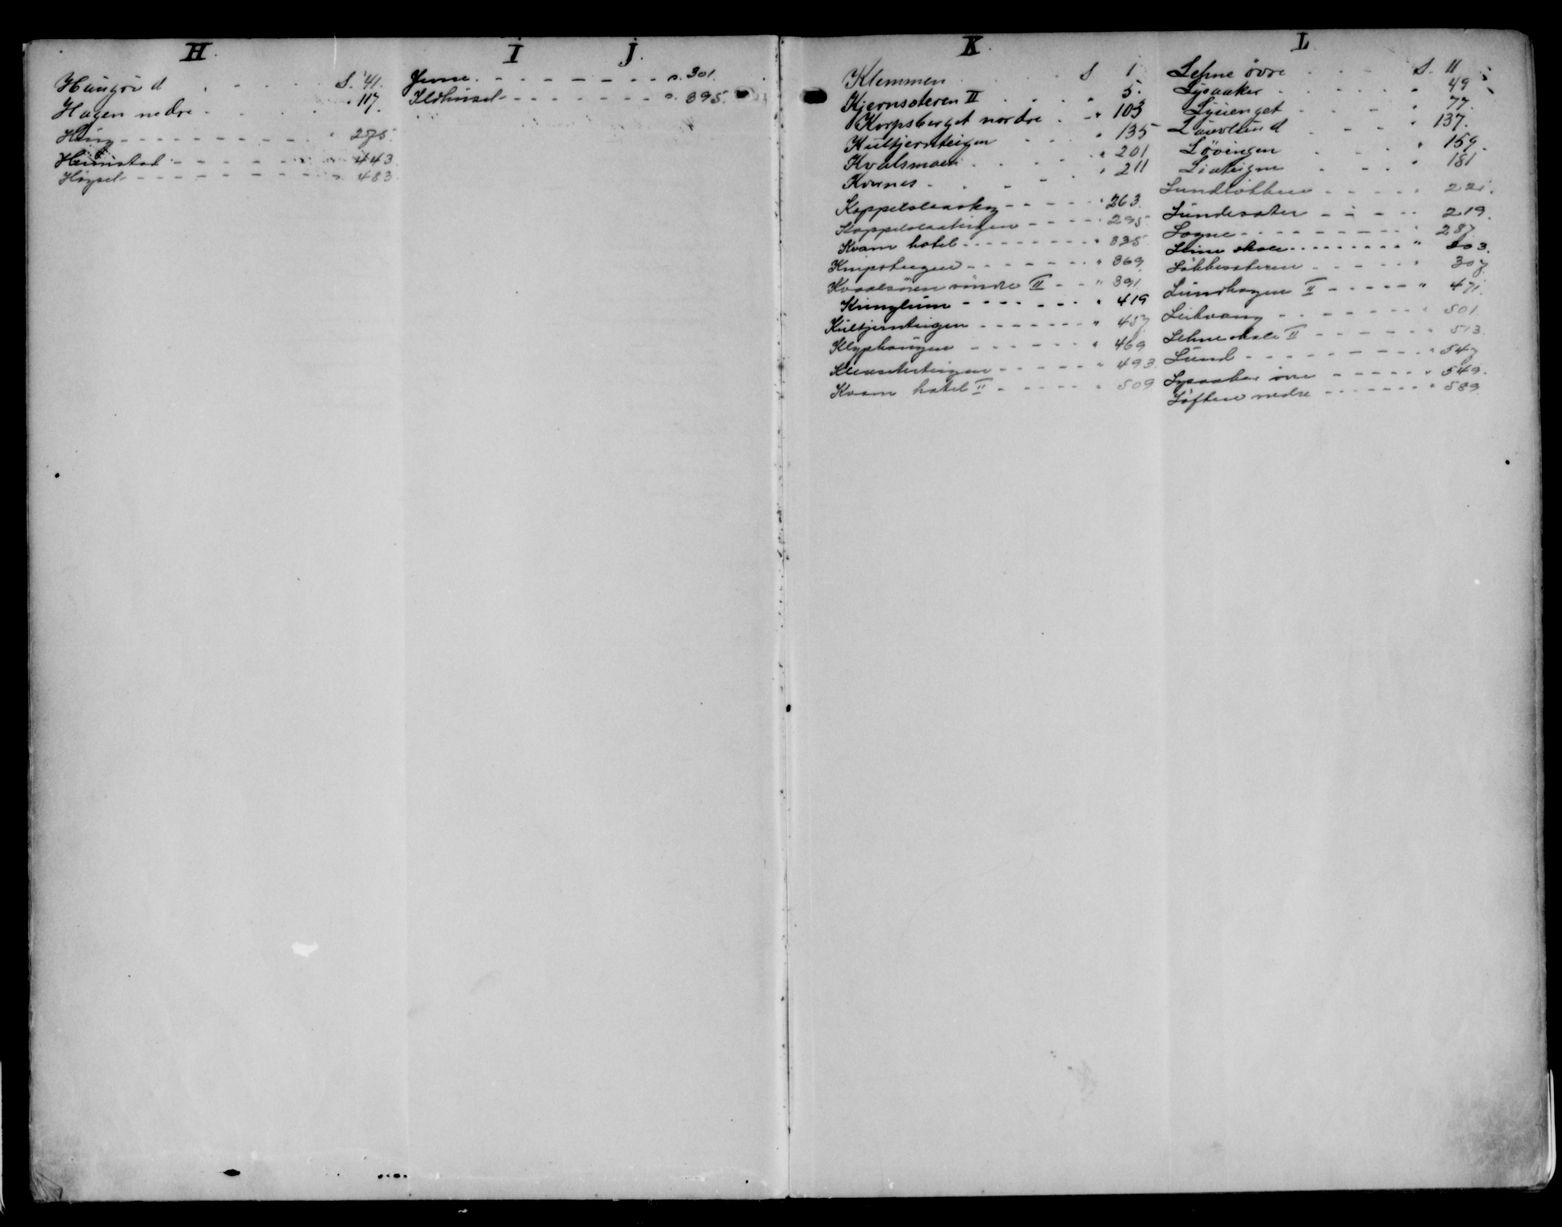 H
Haugrud S. 41.
Hagen nedre " 117.
Haug " 275.
Heimstad " 443
Høysel " 483
I J.
Jenne s. 301.
Ildhuset s. 395.
K
Klemmen S 1
Kjernsæteren II 5.
Korpsberget nordre " 103
Kultjernteigen " 135
Kvalsmoen " 201
Kvernes " 211
Kappelslaaskog " 263.
Kappelslaateigen " 295
Kvam hotel " 335
Knipeteigen " 369
Kvaalsøren søndre II " 391
Kringlum " 419
Kultjernteigen " 457
Klyphaugen " 469
" 493
Kvam hotel II " 509
L
Lehne øvre S. 11
Lysaaker " 49
Lyienget " 77.
Lauvlund " 137.
Løvingen " 159.
Liateigne " 181
Lundløkken 221.
Lundesæter 219.
Logne 237.
Lein skole " 303.
Løkkesæteren " 307
Lundhagen II " 471.
Leikvang " 501
Lehne skole II " 513.
Lund " 547
Lysaaker øvre " 549.
Løften nedre " 589